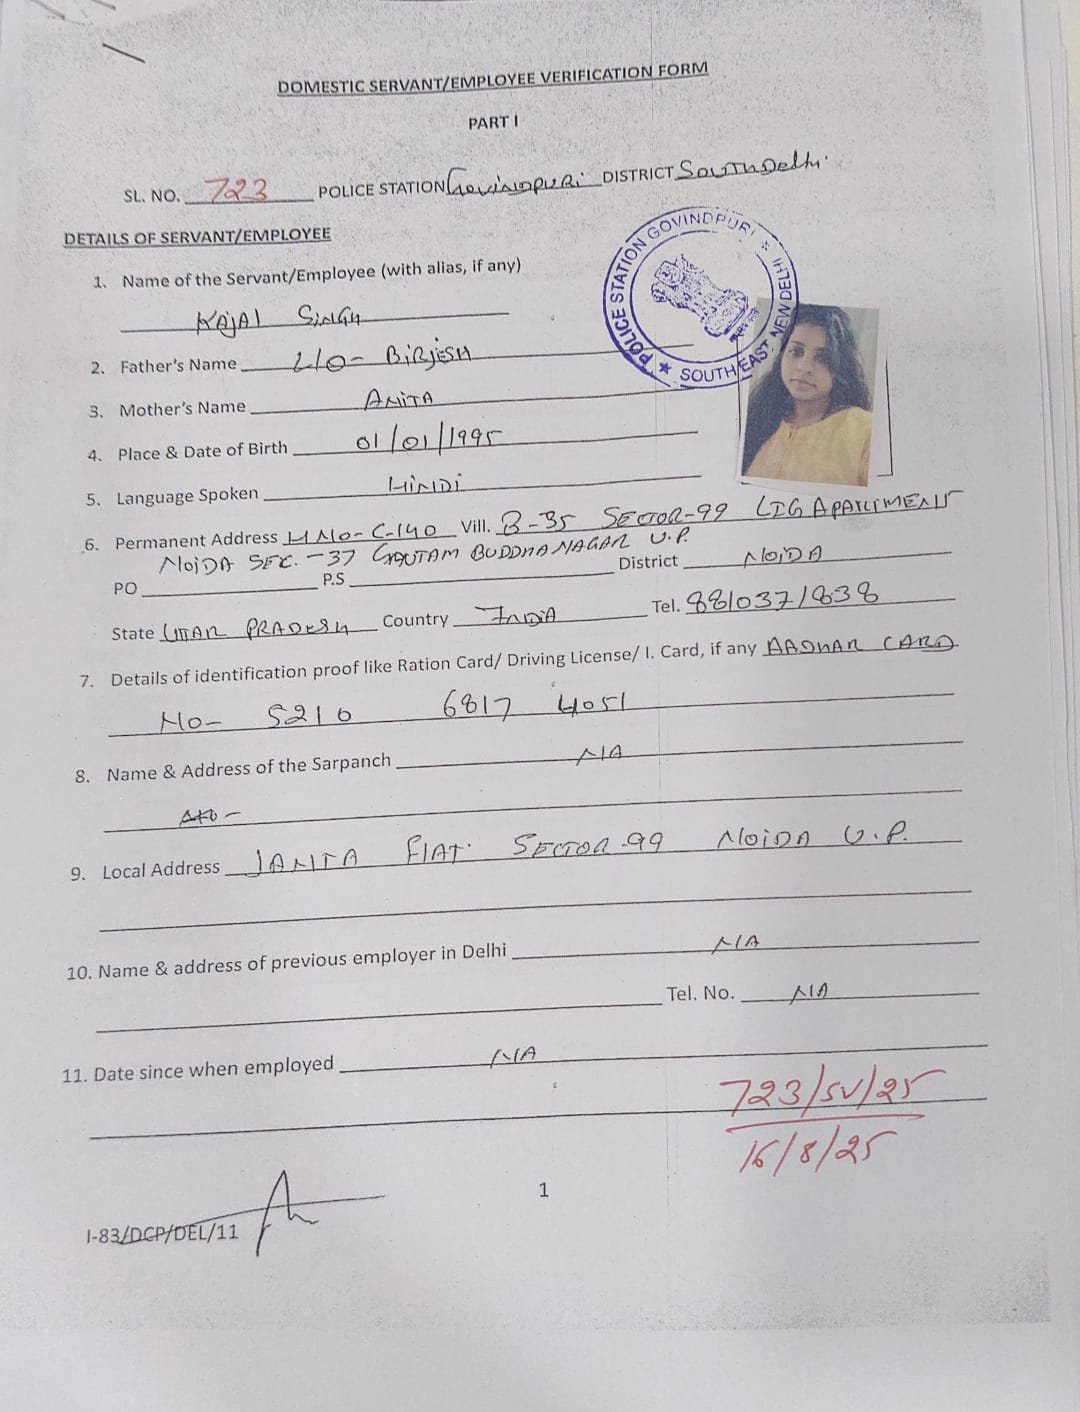 DOMESTIC SERVANT/EMPLOYEE VERIFICATION FORM
PART I
SL. NO. 723 POLICE STATION Govindpuri DISTRICT South Delhi.
DETAILS OF SERVANT/EMPLOYEE
POLICE STATION GOVINDPURI
SOUTH EAST NEW DELHI
1. Name of the Servant/Employee (with alias, if any)
KAJAL SINGH
2. Father's Name BIRJESH
3. Mother's Name ANITA
4. Place & Date of Birth 01/01/1995
5. Language Spoken HINDI
6. Permanent Address H NO- C-140 Vill. B-35 SECTOR-99 LIG APARTMENT
NOIDA SEC.-37 GAUTAM BUDDHA NAGAR U.P.
PO P.S District NOIDA
State UTTAR PRADESH Country INDIA Tel. 8810371838
7. Details of identification proof like Ration Card/ Driving License/ I. Card, if any AADHAR CARD
NO- 5210 6817 4051
8. Name & Address of the Sarpanch N/A
9. Local Address JANTA FLAT. SECTOR-99 NOIDA U.P.
10. Name & address of previous employer in Delhi N/A
Tel. No. N/A
11. Date since when employed N/A
723/SV/25
16/8/25
1
I-83/DCP/DEL/11